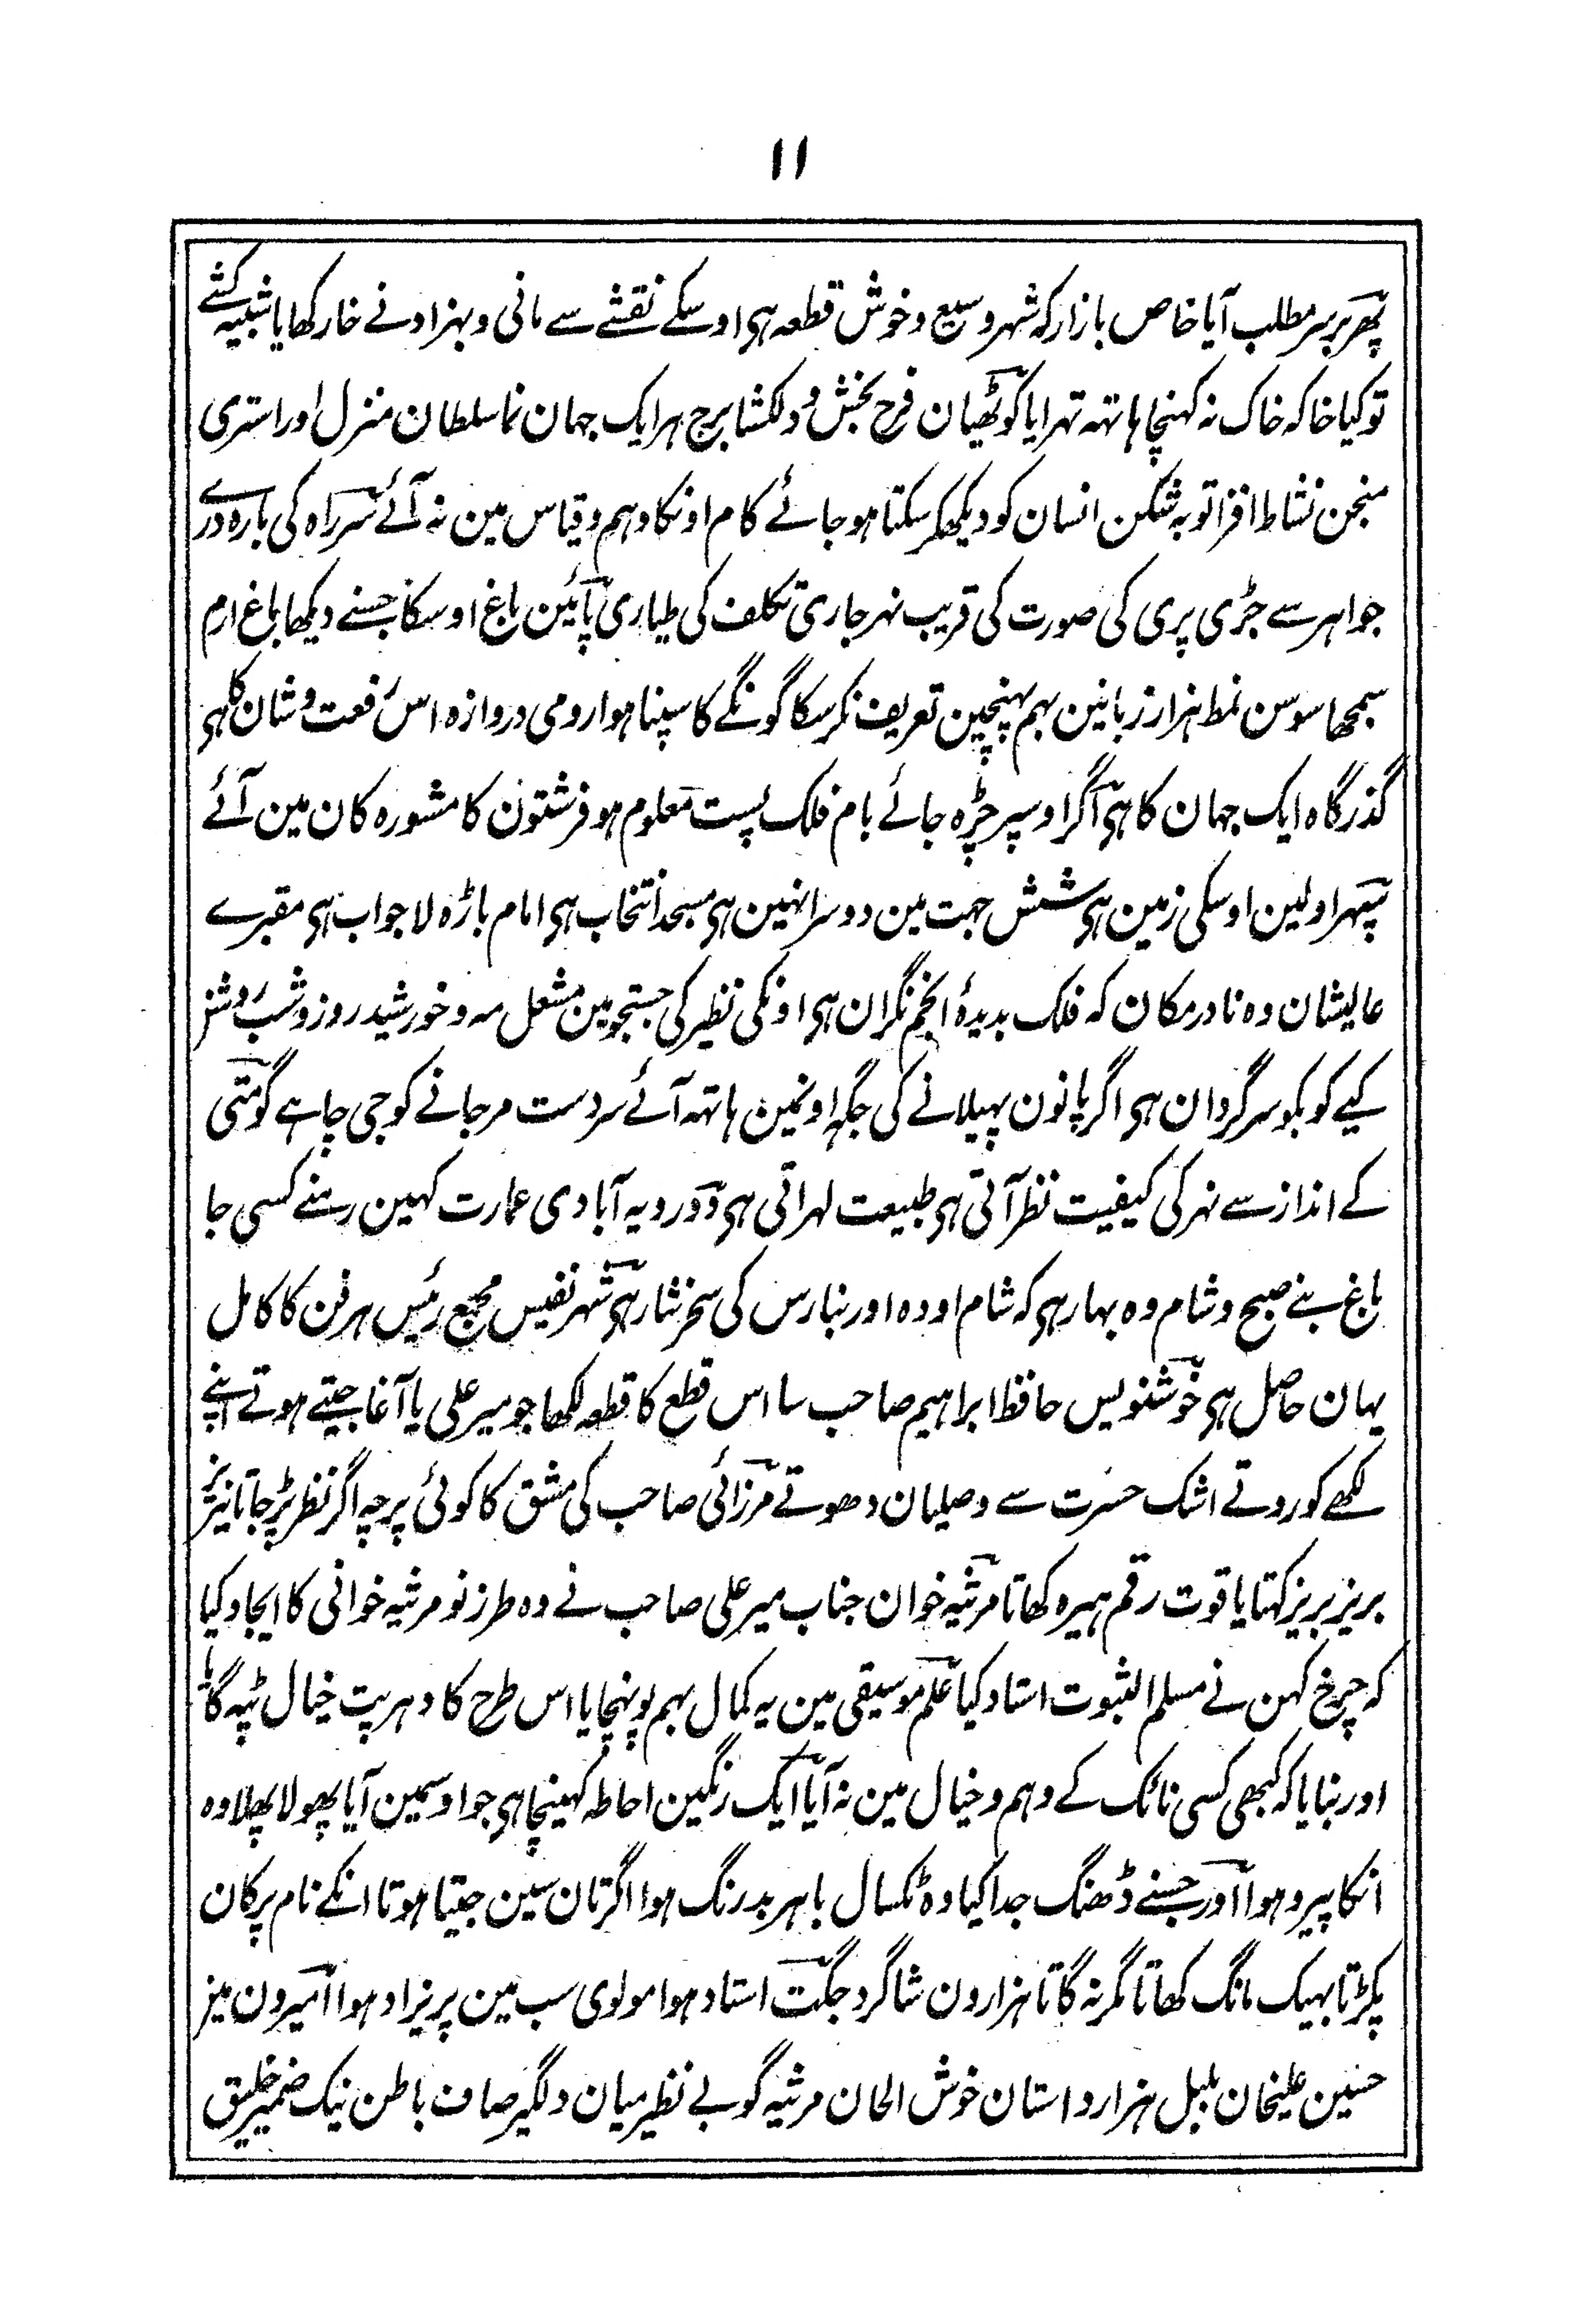 ۱۱
پھر برسر مطلب آیا خاص بازار کہ شہر وسیع و خوش قطعہ ہی اوسکے نقشے سے مانی و بہزاد نے خار کھایا شبیہ کشے
تو کیا خاکہ خاک نہ کہنچا ہاتہہ تہرایا کوٹھیان فرح بخش و دلکشا برج ہر ایک جہان نما سلطان منزل اور استری
منجن نشاط افزا توبہ شکن انسان کو دیکھکر سکتا ہو جائے کام اونکا وہم و قیاس مین نہ آئے سرراہ کی بارہ درے
جواہر سے جڑی پری کی صورت کی قریب نہر جاری تکلف کی طیاری پائین باغ اوسکا جسنے دیکھا باغ ارم
سمجھا سوسن نمط ہزار زبانین بہم پہنچین تعریف نکر سکا گونگے کا سپنا ہوا رومی دروازہ اس رفعت و شان کا ہی
گذرگاہ ایک جہان کا ہی اگر اوسپر چڑہ جائے بام فلک پست معلوم ہو فرشتون کا مشورہ کان مین آئے
سپہر اولین اوسکی زمین ہی شش جہت مین دوسرا نہین ہی مسجد انتخاب ہی امام باڑہ لا جواب ہی مقبرے
عالیشان وہ نادر مکان کہ فلک بدیدۂ انجم نگران ہی اونکی نظیر کی جستجو مین مشعل مہ و خورشید روز و شب روشن
کیے کو بکو سرگردان ہی اگر پانون پہیلانے کی جگہ اونمین ہاتہہ آئے سردست مر جانے کو جی چاہے گومتی
کے انداز سے نہر کی کیفیت نظر آتی ہی طبیعت لہراتی ہی دورویہ آبادی عمارت کہین رمنے کسی جا
باغ بنے صبح و شام وہ بہار ہی کہ شام اودہ اور بنارس کی سحر نثار ہی شہر نفیس مجمع رئیس ہر فن کا کامل
یہان حاصل ہی خوشنویس حافظ ابراہیم صاحب سا اس قطع کا قطعہ لکھا جو میر علی یا آغا جیتے ہوتے اپنے
لکھے کو روتے اشک حسرت سے وصلیان دھوتے مرزائی صاحب کی مشق کا کوئی پرچہ اگر نظر پڑ جاتا نیریز
بریز بریز کہتا یاقوت رقم ہیرہ کھاتا مرثیہ خوان جناب میر علی صاحب نے وہ طرز نو مرثیہ خوانی کا ایجاد کیا
کہ چرخ کہن نے مسلم الثبوت استاد کیا علم موسیقی مین یہ کمال بہم پونہچایا اس طرح کا دہرپت خیال ٹپہ گایا
اور بنایا کہ کبھی کسی نائک کے وہم و خیال مین نہ آیا ایک رنگین احاطہ کہینچا ہی جو اوسمین آیا پھولا پھلا وہ
انکا پیرو ہوا اور جسنے ڈھنگ جدا کیا وہ ٹکسال باہر بدرنگ ہوا اگر تان سین جیتا ہوتا انکے نام پر کان
پکڑتا بہیک مانگ کھاتا مگر نہ گاتا ہزارون شاگرد جگت استاد ہوا مولوی سب مین پریزاد ہوا امیرون مین
حسین علیخان بلبل ہزار داستان خوش الحان مرثیہ گو بے نظیر میان دلگیر صاف باطن نیک ضمیر خلیق